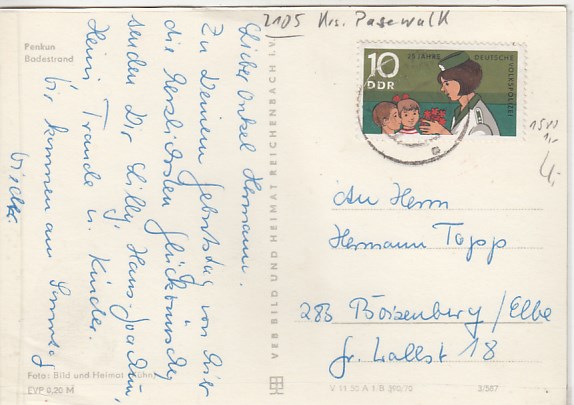 2105 Krs. Pasewalk
Penkun
Badestrand
Lieber Onkel Hermann.
Zu Deinem Geburtstag von
die herzlichsten Glückwünsche
senden Dir Lilly, Hans-Joachim,
Heini, Traude u. Kinder.
Wir kommen am Sonntag.
Foto: Bild und Heimat
EVP 0,20 M
VEB BILD UND HEIMAT REICHENBACH I.V.
10
DDR
25 JAHRE DEUTSCHE
VOLKSPOLIZEI
An Herrn
Hermann Topp
283 Boizenburg/Elbe
Gr. Wallst 18
V 11 50 A 1 B 390/70
3/587